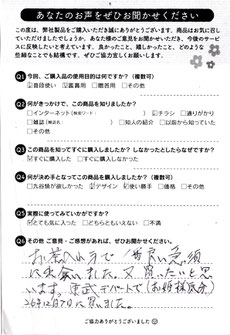 あなたのお声をぜひお聞かせください
この度は、弊社製品をご購入いただき誠にありがとうございます。商品はお気に召し
ていただけましたでしょうか。あなた様のご意見をお聞かせいただき、今後のサービ
スに反映したいと考えています。良かったこと、嬉しかったこと、どのような
些細なことでも結構です、ぜひご協力宜しくお願いします。
Q1 今回、ご購入品の使用目的は何ですか？（複数可）
普段使い 鑑賞用 贈答用 その他
Q2 何がきっかけで、この商品を知りましたか？
インターネット（検索ワード： ） チラシ 通りがかり
雑誌（雑誌名： ） 知人の紹介 以前から知っていた
その他
Q3 この商品を知ってすぐに購入しましたか？しなかったとしたらなぜですか？
すぐに購入した すぐに購入しなかった
Q4 何が決め手となってこの商品を購入しましたか？（複数可）
九谷焼が欲しかった デザイン 使い勝手 価格 その他
Q5 実際に使ってみていかがですか？
とても気に入った どちらともいえない 不満
Q6 その他ご意見・ご感想があれば、ぜひお聞かせください。
お茶へのみで 良い急須
に出会いました。又買いたいと思
います。東武デパートで
26年12月7日に買いました
ご協力ありがとうございました